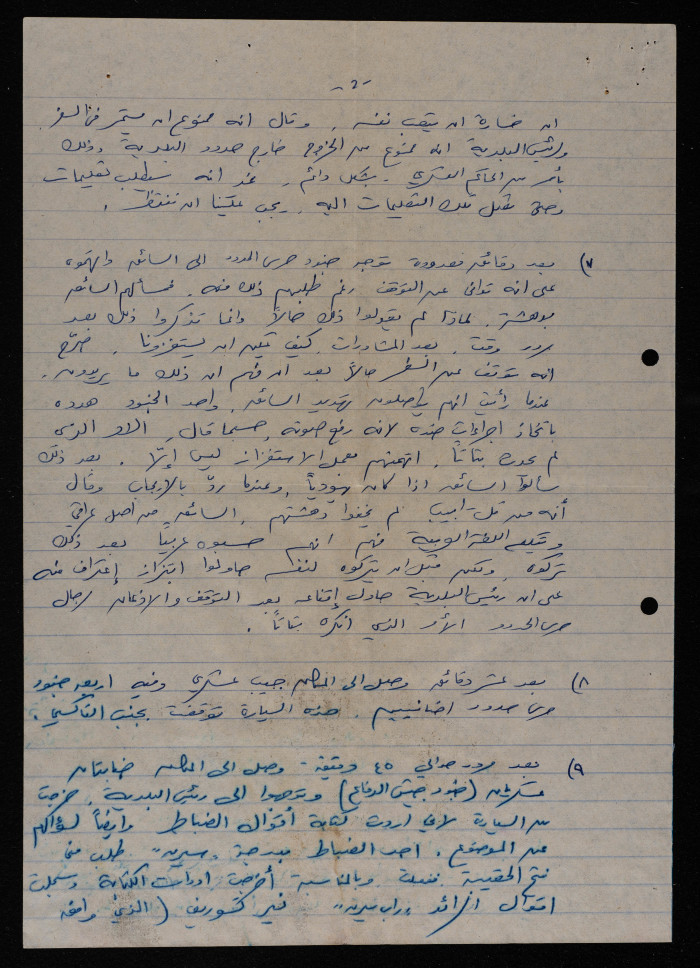 -2-
ان خسارة ان يتعب نفسه. وقال انه ممنوع ان يستمر في السفر
ولرئيس البلدية انه ممنوع من الخروج خارج حدود البلدية وذلك
بأمر من الحاكم العسكري. بشكل دائم. غير انه سيطلب تعليمات
وحتى تصل تلك التعليمات اليه. يجب علينا ان ننتظر.
٧) بعد دقائق معدودة توجه جنود حرس الحدود الى السائق واتهموه
على انه توانى عن التوقف رغم طلبهم ذلك منه. فسألهم السائق
بدهشة. لماذا لم يقولوا ذلك حالاً وانما تذكروا ذلك بعد
مرور وقت. بعد المشاورات. كيف يمكن ان يستفزونا. صرّح
انه توقف عن السفر حالاً بعد ان فهم ان ذلك ما يريدون.
عندما رأيت انهم يواصلون تهديد السائق. واحد الجنود هدده
باتخاذ اجراءات ضده لانه رفع صوته حسبما قال، الامر الذي
لم يحدث بتاتاً. اتهمتهم بعمل الاستفزاز ليس إلّا. بعد ذلك
سألوا السائق اذا كان يهودياً، وعندما ردّ بالايجاب وقال
أنه من تل-أبيب لم يخفوا دهشتهم. السائق من اصل عراقي
ويتكلم اللغة العربية فهم انهم حسبوه عربياً بعد ذلك
تركوه. ولكن قبل ان يتركوه لنفسه حاولوا ابتزاز إعتراف منه
على ان رئيس البلدية حاول إقناعه بعدم التوقف والاذعان لرجال
حرس الحدود الأمر الذي انكره بتاتاً.
٨) بعد عشر دقائق وصل الى المكان جيب عسكري وفيه اربعة جنود
حرس حدود اضافيين. هذه السيارة توقفت بجنب التاكسي.
٩) بعد مرور حوالي ٤٥ دقيقة وصل الى المكان ضابطان
عسكريان (جنود جيش الدفاع) وتوجهوا الى رئيس البلدية. خرجت
من السيارة لاني اردت كتابة أقوال الضباط وايضاً لسؤالهم
عن الموضوع. احد الضباط بدرجة "سيرن" طلب مني
فتح الحقيبة ففتحت وبالمناسبة أخرجت ادوات الكتابة وسجلت
اقوال الرائد "راب سيرن" (الذي رافقه